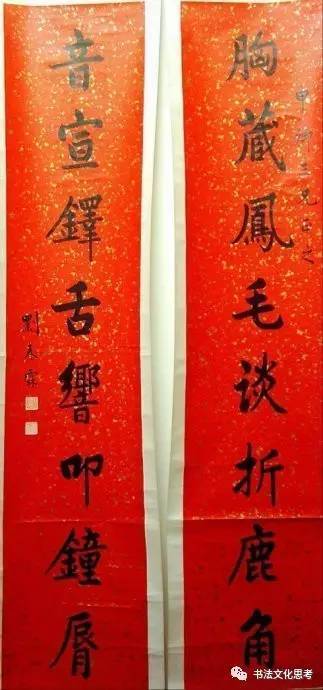 胸藏鳳毛谈折鹿角
三兄正之
音宣鐸舌響叩鐘脣
劉春霖
书法文化思考